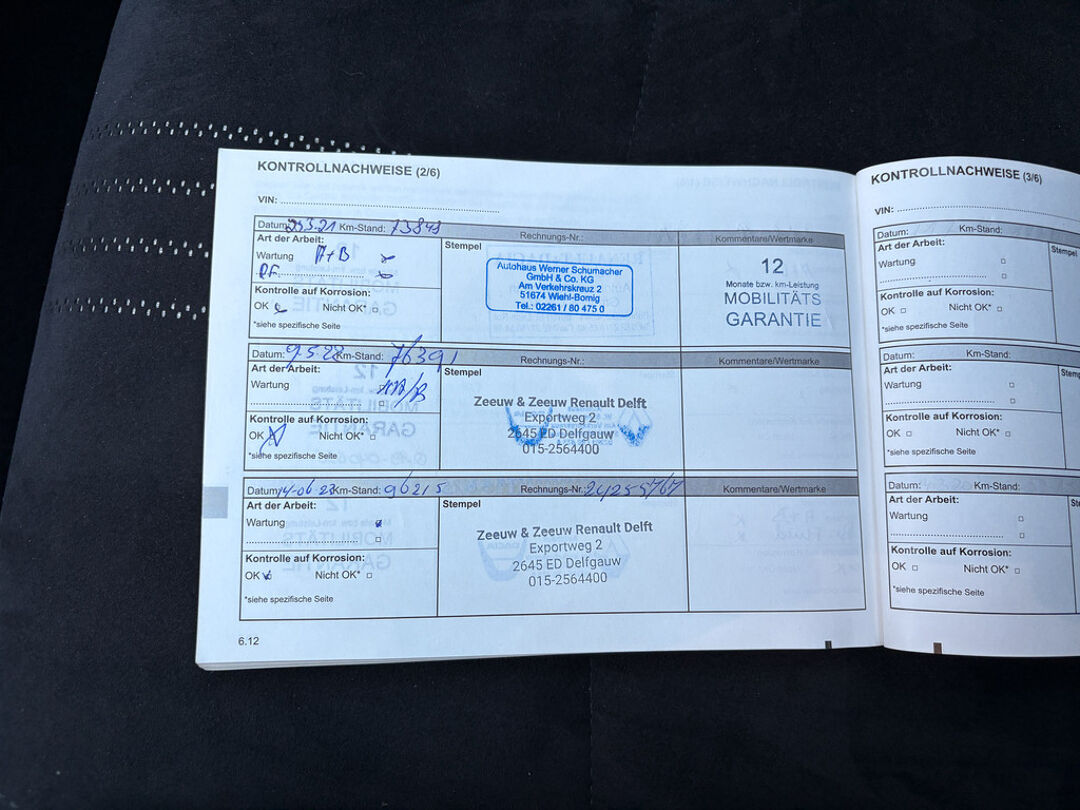 KONTROLLNACHWEISE (2/6)
VIN:
Datum: 25.3.21 Km-Stand: 73848 Rechnungs-Nr.: Kommentare/Wertmarke
Art der Arbeit:
Wartung A+B
PF
Kontrolle auf Korrosion:
OK Nicht OK*
*siehe spezifische Seite
Stempel
Autohaus Werner Schumacher
GmbH & Co. KG
Am Verkehrskreuz 2
51674 Wiehl-Bomig
Tel.: 02261 / 80 475 0
12
Monate bzw. km-Leistung
MOBILITÄTS
GARANTIE
Datum: 9.5.22 Km-Stand: 76391 Rechnungs-Nr.: Kommentare/Wertmarke
Art der Arbeit:
Wartung
Kontrolle auf Korrosion:
OK Nicht OK*
*siehe spezifische Seite
Stempel
Zeeuw & Zeeuw Renault Delft
Exportweg 2
2645 ED Delfgauw
015-2564400
Datum: 14-06 23 Km-Stand: 96215 Rechnungs-Nr.: 24255767 Kommentare/Wertmarke
Art der Arbeit:
Wartung
Kontrolle auf Korrosion:
OK Nicht OK*
*siehe spezifische Seite
Stempel
Zeeuw & Zeeuw Renault Delft
Exportweg 2
2645 ED Delfgauw
015-2564400
6.12
KONTROLLNACHWEISE (3/6)
VIN:
Datum: Km-Stand:
Art der Arbeit:
Wartung
Kontrolle auf Korrosion:
OK Nicht OK*
*siehe spezifische Seite
Stempel
Datum: Km-Stand:
Art der Arbeit:
Wartung
Kontrolle auf Korrosion:
OK Nicht OK*
*siehe spezifische Seite
Datum: Km-Stand:
Art der Arbeit:
Wartung
Kontrolle auf Korrosion:
OK Nicht OK*
*siehe spezifische Seite